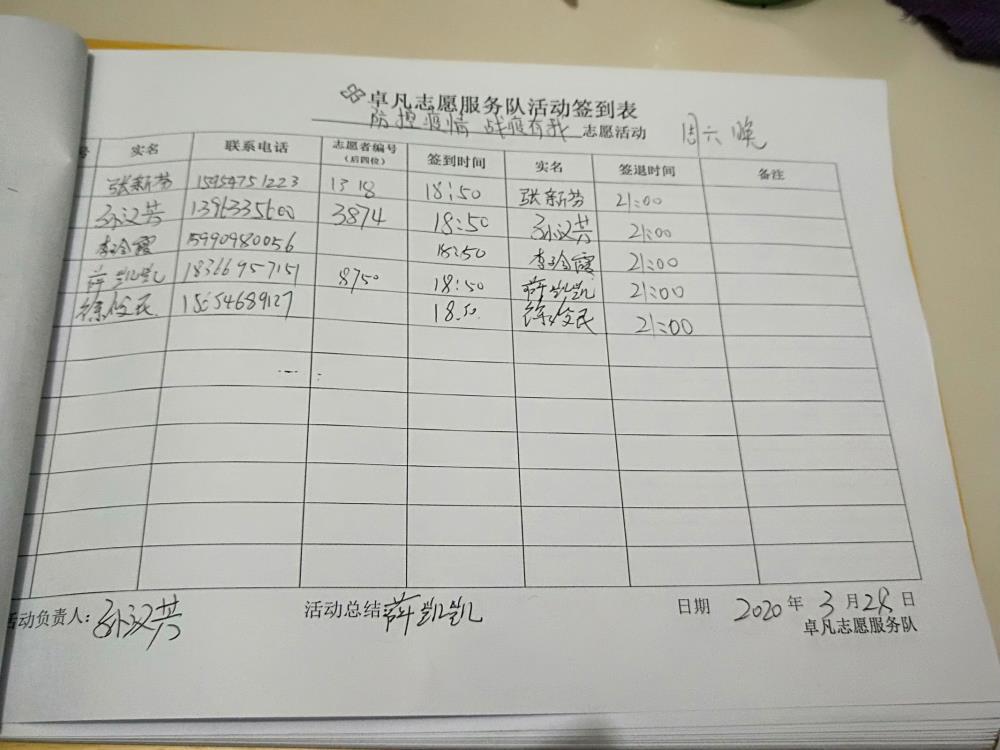 卓凡志愿服务队活动签到表
防控疫情 战疫有我 志愿活动 周六晚
号 实名 联系电话 志愿者编号(后四位) 签到时间 实名 签退时间 备注
张新芳 15954751223 1318 18:50 张新芳 21:00
孙汉芸 1396335600 3874 18:50 孙汉芸 21:00
李玲霞 15990980056 18:50 李玲霞 21:00
薛凯凯 18366957151 8750 18:50 薛凯凯 21:00
徐俊民 18654689127 18:50 徐俊民 21:00
活动负责人: 孙汉芸 活动总结 薛凯凯 日期 2020 年 3 月 28 日
卓凡志愿服务队